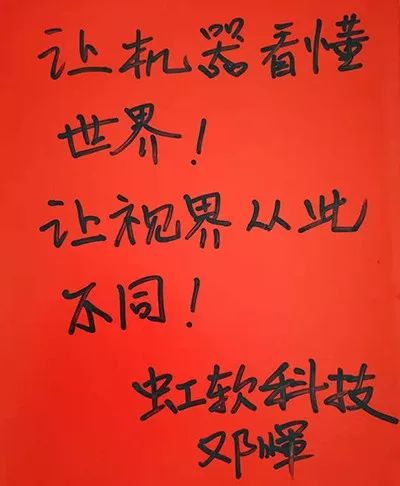 让机器看懂
世界！
让视界从此
不同！
虹软科技
邓晖